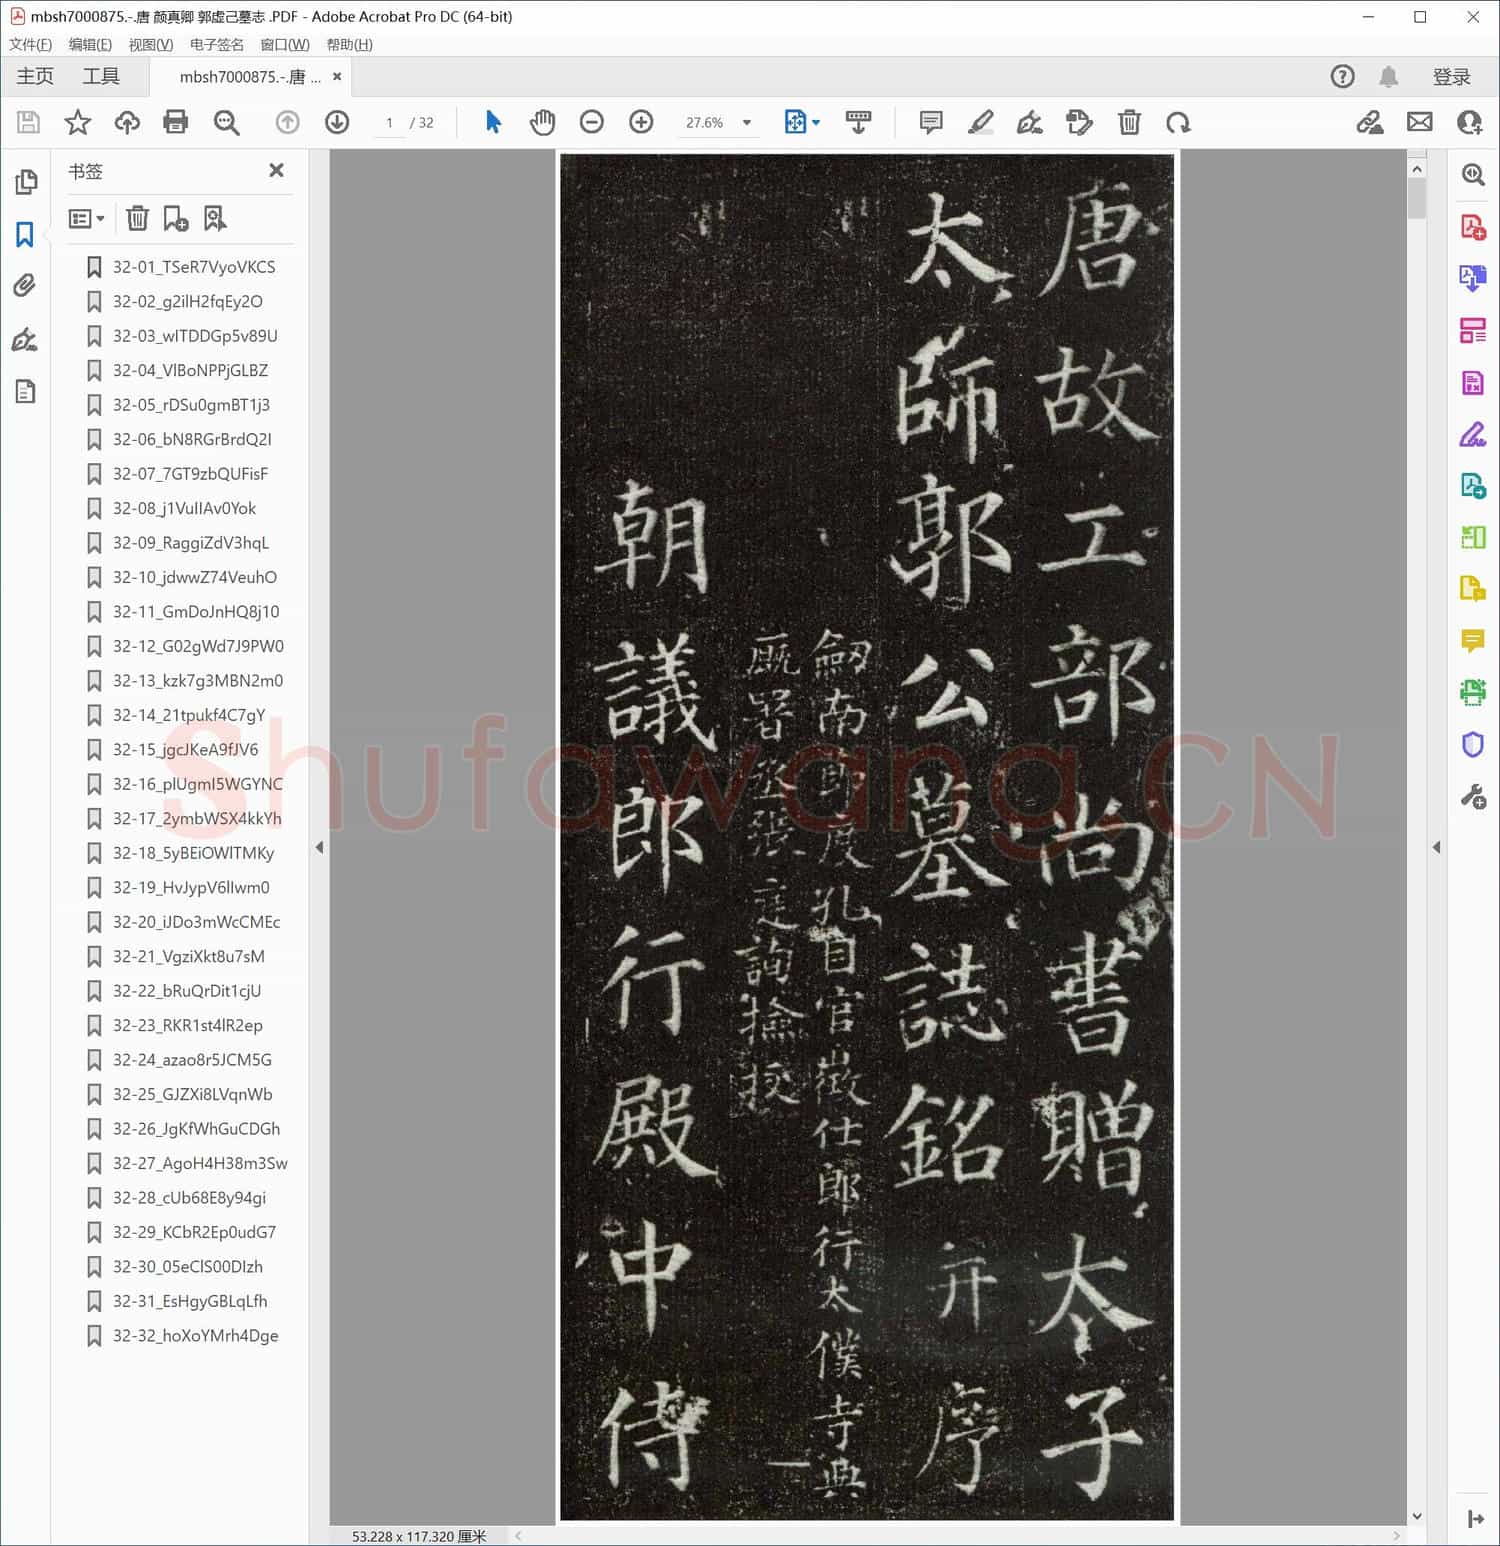 mbsh7000875.-.唐 颜真卿 郭虚己墓志 .PDF - Adobe Acrobat Pro DC (64-bit)
文件(F) 编辑(E) 视图(V) 电子签名 窗口(W) 帮助(H)
主页 工具 mbsh7000875.-.唐 ... × 登录
1 / 32 27.6%
书签
32-01_TSeR7VyoVKCS
32-02_g2ilH2fqEy2O
32-03_wlTDDGp5v89U
32-04_VlBoNPPjGLBZ
32-05_rDSu0gmBT1j3
32-06_bN8RGrBrdQ2I
32-07_7GT9zbQUFisF
32-08_j1VuIIAv0Yok
32-09_RaggiZdV3hqL
32-10_jdwwZ74VeuhO
32-11_GmDoJnHQ8j10
32-12_G02gWd7J9PW0
32-13_kzk7g3MBN2m0
32-14_21tpukf4C7gY
32-15_jgcJKeA9fJV6
32-16_plUgmI5WGYNC
32-17_2ymbWSX4kkYh
32-18_5yBEiOWlTMKy
32-19_HvJypV6lIwm0
32-20_iJDo3mWcCMEc
32-21_VgziXkt8u7sM
32-22_bRuQrDit1cjU
32-23_RKR1st4lR2ep
32-24_azao8r5JCM5G
32-25_GJZXi8LVqnWb
32-26_JgKfWhGuCDGh
32-27_AgoH4H38m3Sw
32-28_cUb68E8y94gi
32-29_KCbR2Ep0udG7
32-30_05eClS00DIzh
32-31_EsHgyGBLqLfh
32-32_hoXoYMrh4Dge
唐故工部尚書贈太子
太師郭公墓誌銘并序
劒南節度孔目官徵仕郎行太僕寺典
厩署丞張庭詢撿挍
朝議郎行殿中侍
Shufawang.CN
53.228 x 117.320 厘米